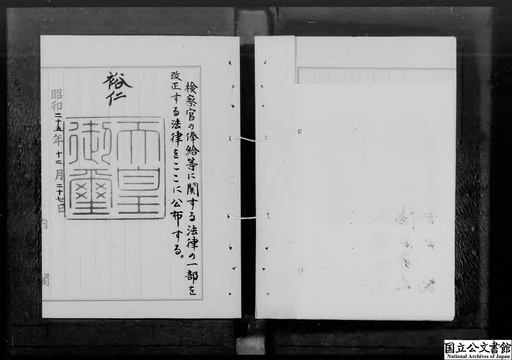 検察官の俸給等に関する法律の一部を
改正する法律をここに公布する。
裕仁
天皇
御璽
昭和二十五年十二月二十七日
内閣
国立公文書館
National Archives of Japan